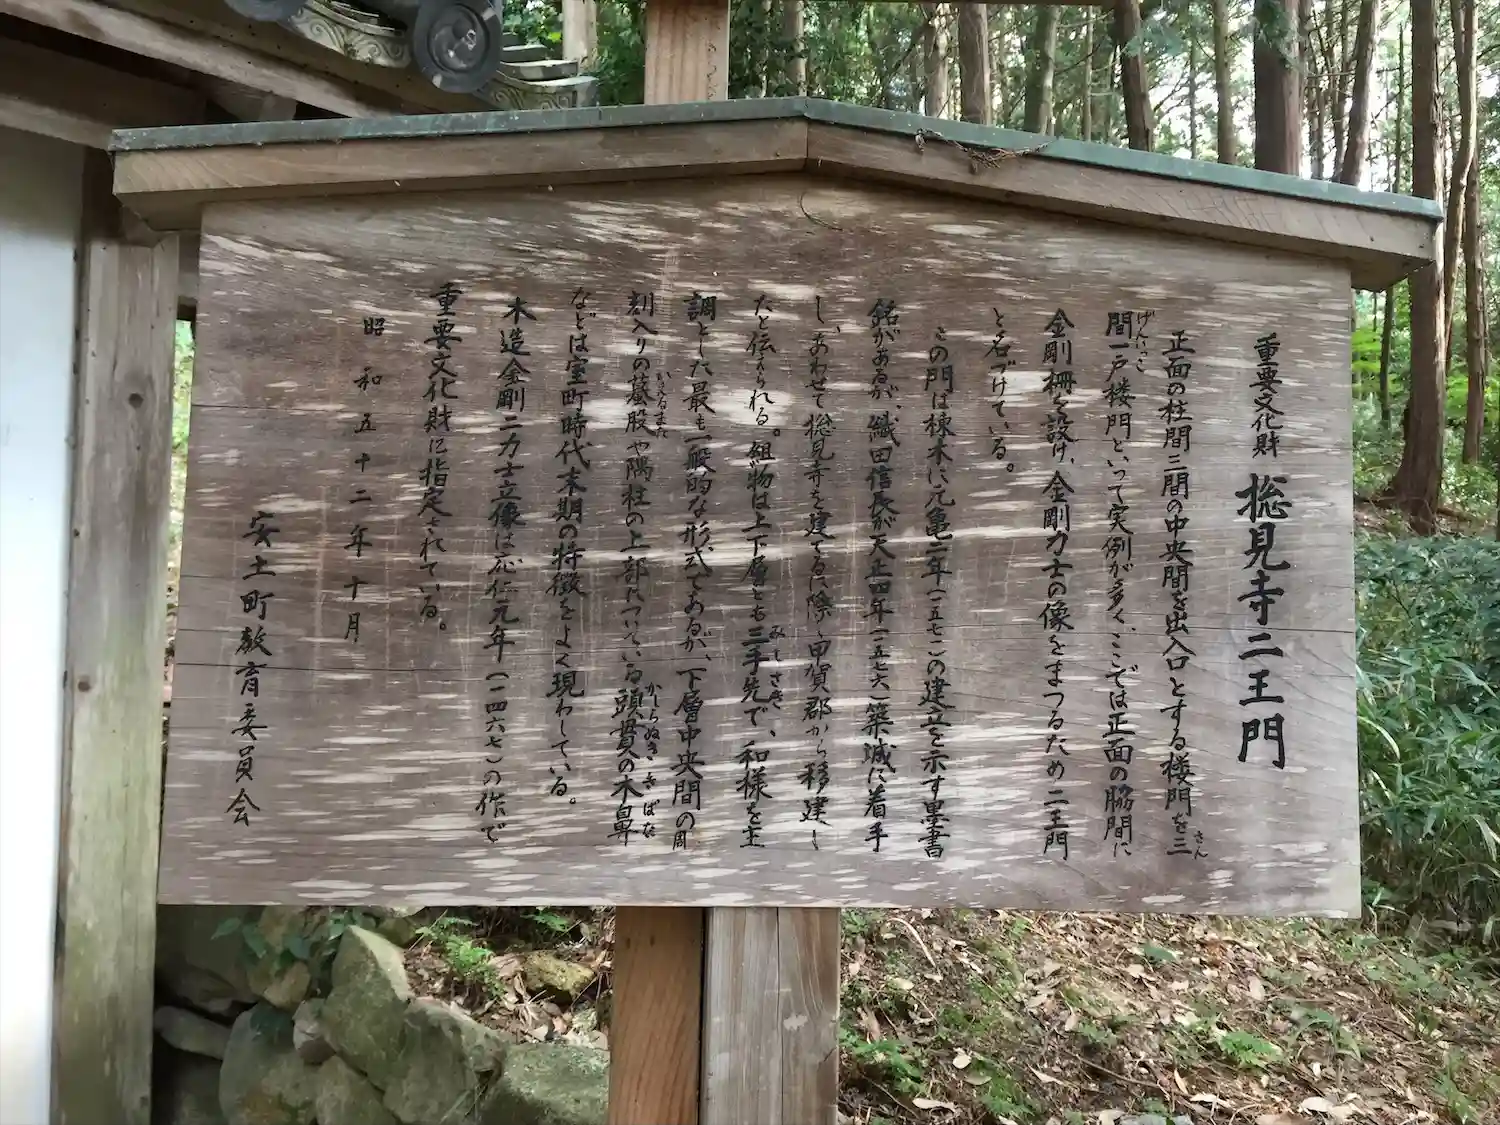 重要文化財 摠見寺二王門
正面の柱間三間の中央間を出入口とする楼門を三
間一戸楼門といって実例が多く、ここでは正面の脇間に
金剛柵を設け、金剛力士の像をまつるため二王門
と名づけている。
この門は棟木に元亀二年(一五七一)の建立を示す墨書
銘があるが、織田信長が天正四年(一五七六)築城に着手
し、あわせて摠見寺を建てるに際し甲賀郡から移建し
たと伝えられる。組物は上下層とも三手先で、和様を主
調とした最も一般的な形式であるが、下層中央間の周
刻入りの蟇股や隅柱の上部についている頭貫の木鼻
などは室町時代末期の特徴をよく現わしている。
木造金剛二力士立像は応仁元年(一四六七)の作で
重要文化財に指定されている。
昭和五十二年十月
安土町教育委員会